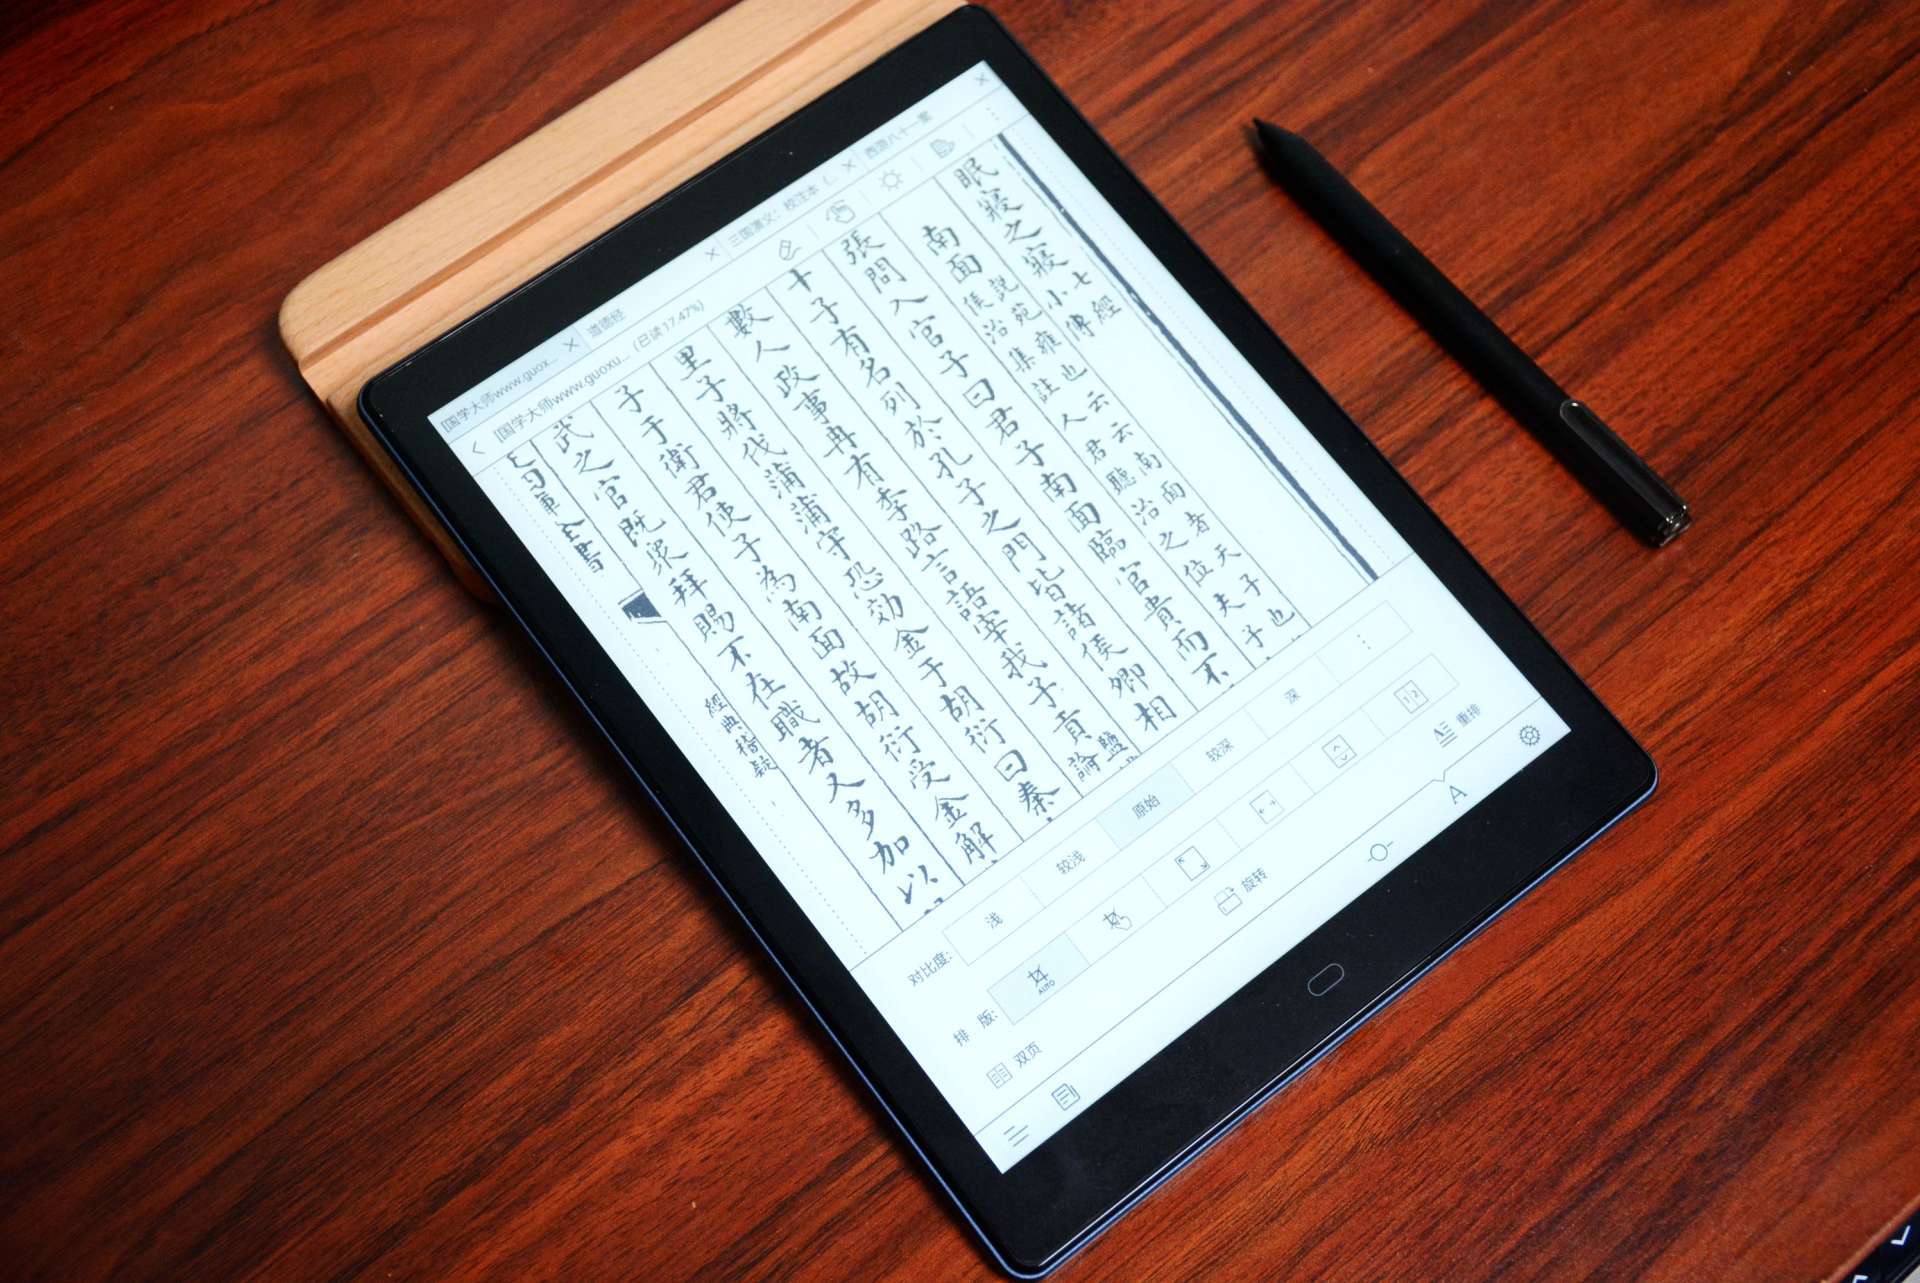 国学大师www.guox...
道德经
三国演义：校注本（...
[国学大师www.guoxu... (已读 17.47%)
眠寢之寢
七經
小傳
南面
説苑雍也云云南面者天子也
侯治集註人君聽治之位夫子
張問入官子曰君子南面臨官貴而不
十子有名列於孔子之門皆諸侯卿相
數人政事冉有季路言語宰我子貢
鹽
論
里子將代蒲蒲守恐効金于胡衍曰秦
子于衛君使子為南面故胡衍受金解
武之官既衆拜賜不在職者又多加以
全書
經典稽疑
对比度: 浅 较浅 原始 较深 深
排 版: AUTO
双页 旋转 重排
A